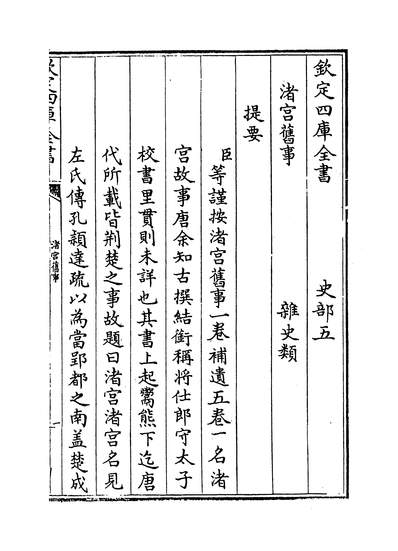 欽定四庫全書　史部五
渚宮舊事　雜史類
提要
臣等謹按渚宮舊事一卷補遺五卷一名渚
宮故事唐余知古撰結銜稱將仕郎守太子
校書里貫則未詳也其書上起鬻熊下迄唐
代所載皆荆楚之事故題曰渚宮渚宮名見
左氏傳孔穎達疏以為當郢都之南盖楚成
欽定四庫全書
渚宮舊事
一